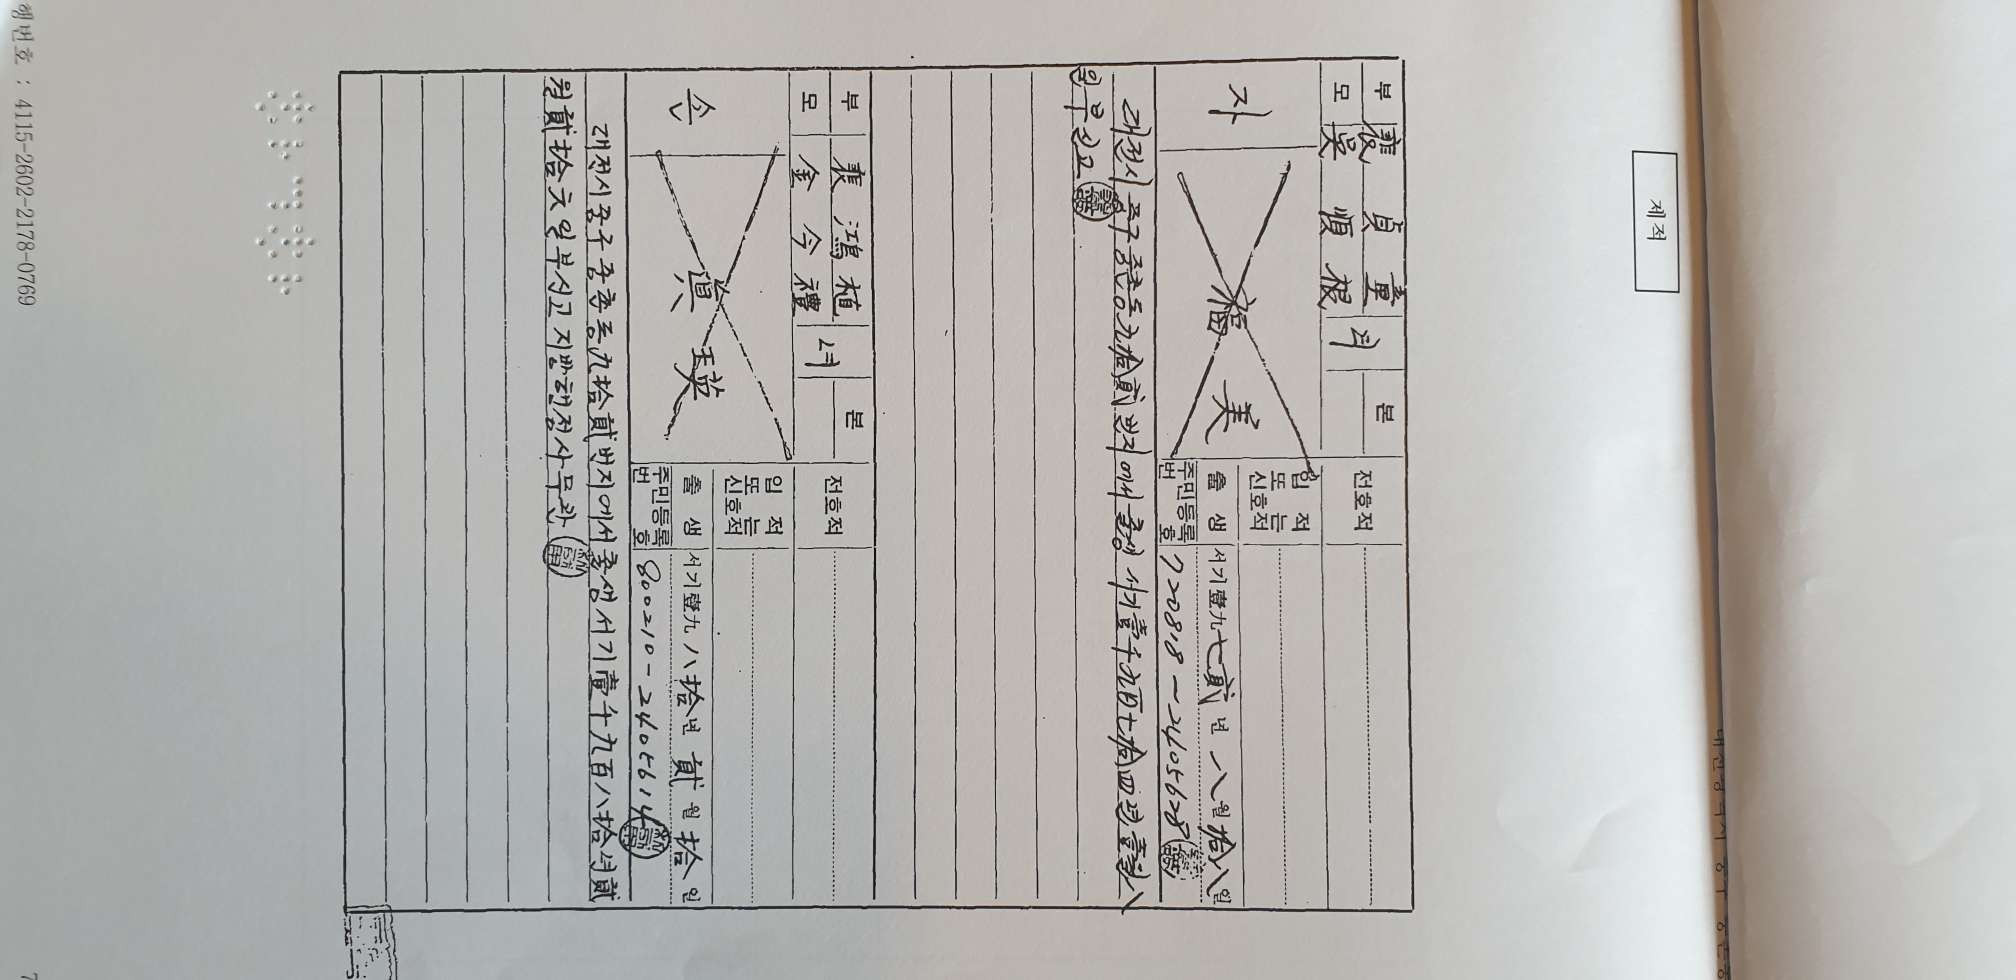 제적
부 裵 貞 童
모 吳 順 根
녀
본
전호적
자
福 美
입 적 또 는 신호적
출 생 서기壹九七貳년 八월拾八일
주민등록번 호 720818-2405628
대전시 중구 중촌동九拾貳번지에서 출생 서기壹千九百七拾四年壹월八
일부신고
부 裵 鴻 植
모 金 今 禮
녀
본
전호적
손
眞 瑛
입 적 또 는 신호적
출 생 서기壹九八拾년 貳월 拾일
주민등록번 호 800210-2405614
대전시중구중촌동九拾貳번지에서출생서기壹千九百八拾년貳
월貳拾六일부신고지방행정사무관
행번호 : 4115-2602-2178-0769